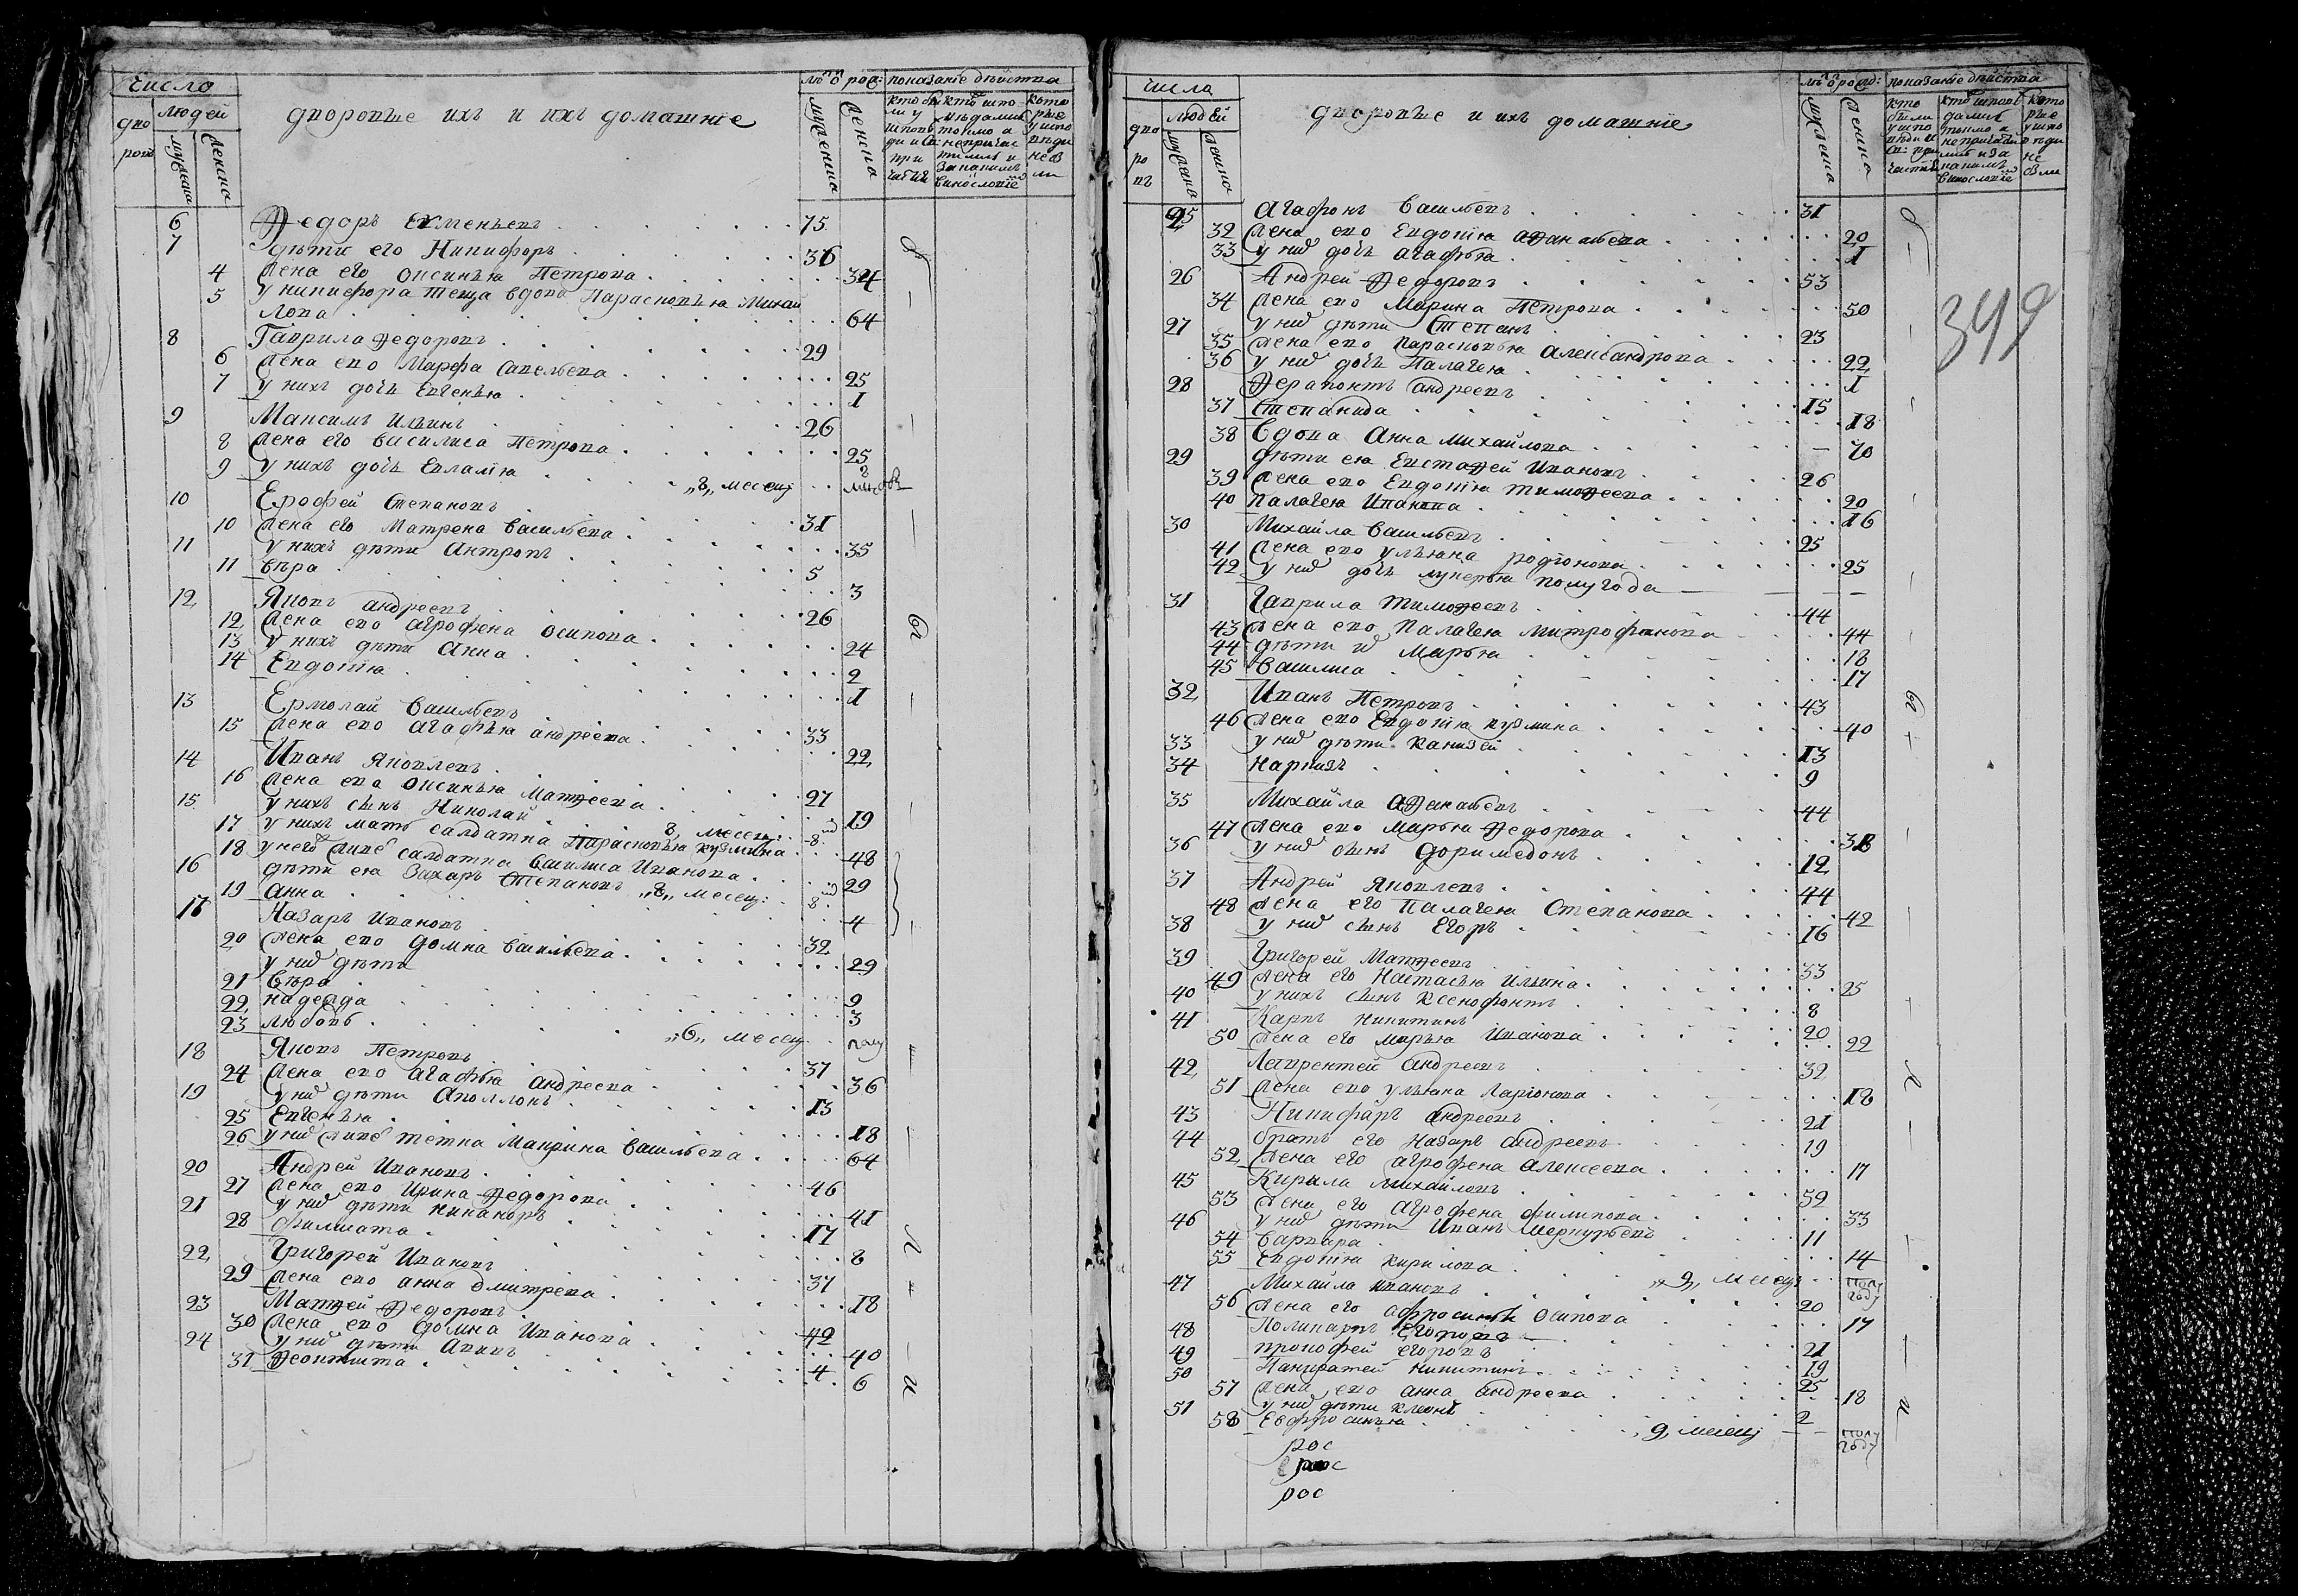 число
людей
дворовые ихъ и ихъ домашние
лѣтъ рож:
показание дѣйства
6 Ѳедоръ Екменьевъ 75
7 дѣти его Никифоръ 36
4 жена его Оксинья Петрова 34
5 у никифора теща вдова Парасковья Михай
лова 64
8 Гаврила Ѳедоровъ 29
6 жена ево Марфа Савельева 25
7 у нихъ дочь Евгенья 1
9 Максимъ Ильинъ 26
8 жена его василиса Петрова 25
9 у нихъ дочь Евламія „8„ месец
10 Ерофей Степановъ 31
10 жена его Матрена Васильева 35
11 у нихъ дѣти Антропъ 5
11 вѣра 3
12 Яковъ андреевъ 26
12 жена ево агрофена осипова 24
13 у нихъ дѣти Анна 2
14 Евдотія 1
13 Ермолай васильевъ 33
15 жена ево агафья андреева 22
14 Иванъ Яковлевъ 27
16 жена ево Оксинья Матѳеева 19
15 у нихъ сынъ Николай 8, месец: 8
17 у нихъ мать салдатка Парасковья кузмина 48
18 у него живе салдатка василиса Иванова 29
16 дѣти ея Захаръ Степановъ „8„ месец: 8
19 анна 4
17 Назаръ Ивановъ 32
20 жена ево домна васильева 29
у них дѣти
21 вѣра 9
22 надежда 3
23 любовь „6„ месец полу
18 Яковъ Петровъ 37
24 жена ево агафья андреева 36
19 у них дѣти Аполлонъ 13
25 Евгенья 18
26 у них живе тетка Маврина васильева 64
20 Андрей Ивановъ 46
27 жена ево Ирина Ѳедорова 41
21 у них дѣти никаноръ 17
28 филисата 8
22 Григорей Ивановъ 37
29 жена ево анна дмитрева 18
23 Матѳей Ѳедоровъ 42
30 жена ево домна Иванова 40
24 у них дѣти 4
31 Ѳеоктиста 6
числа
людей
дворовые и ихъ домашние
лѣтъ рожд:
показание дѣйства
349
25 Агафонъ васильевъ 31
32 жена ево Евдотія аѳанасьева 20
33 у них дочь агафья 1
26 Андрей Ѳедоровъ 53
34 жена ево Марина Петрова 50
27 у них дѣти Степанъ 23
35 жена ево парасковья александрова 22
36 у них дочь Палагея 1
28 Ѳерапонтъ андреевъ 15
37 Степанида 18
38 вдова Анна михайлова 70
29 дѣти ея Евстаѳей Ивановъ 26
39 жена ево Евдотія тимоѳеева 20
40 палагея Иванова 16
30 Михайла васильевъ 25
41 жена ево ульяна родіонова 25
42 у них дочь лукерья полугода
31 Гаврила тимоѳеевъ 44
43 жена ево Палагея митрофанова 44
44 дѣти их Марья 18
45 василиса 17
32 Иванъ Петровъ 43
46 жена ево Евдотія кузмина 40
33 у них дѣти 13
34 наркизъ 9
35 Михайла аѳанасьевъ 44
47 жена ево марья Ѳедорова 38
36 у них сынъ доримедонъ 12
37 Андрей Яковлевъ 44
48 жена его Палагея Степанова 42
38 у них сынъ Егоръ 16
39 Григорей Матѳеевъ 33
49 жена его Настасья Ильина 25
40 у нихъ сынъ ксенофонтъ 8
41 Карпъ никитинъ 20
50 жена его марья Иванова 22
42 Лаврентей андреевъ 32
51 жена ево ульяна ларіонова 18
43 Никифоръ андреевъ 21
44 братъ его назаръ андреевъ 19
52 жена его агрофена алексеева 17
45 Кирила михайловъ 52
53 жена его агрофена филипова 33
46 у них дѣти Иванъ 11
54 варвара 14
55 Евдотія кирилова „9„ месец полу году
47 Михайла ивановъ 20
56 жена его афросинья осипова 17
48 Поликарпъ Егоровъ 21
49 прокофей егоровъ 19
50 Панкратей никитинъ 25
57 жена ево анна андреева 18
51 у них дѣти 2
58 Евфросинья 9, месец полу году
рос
рос
рос